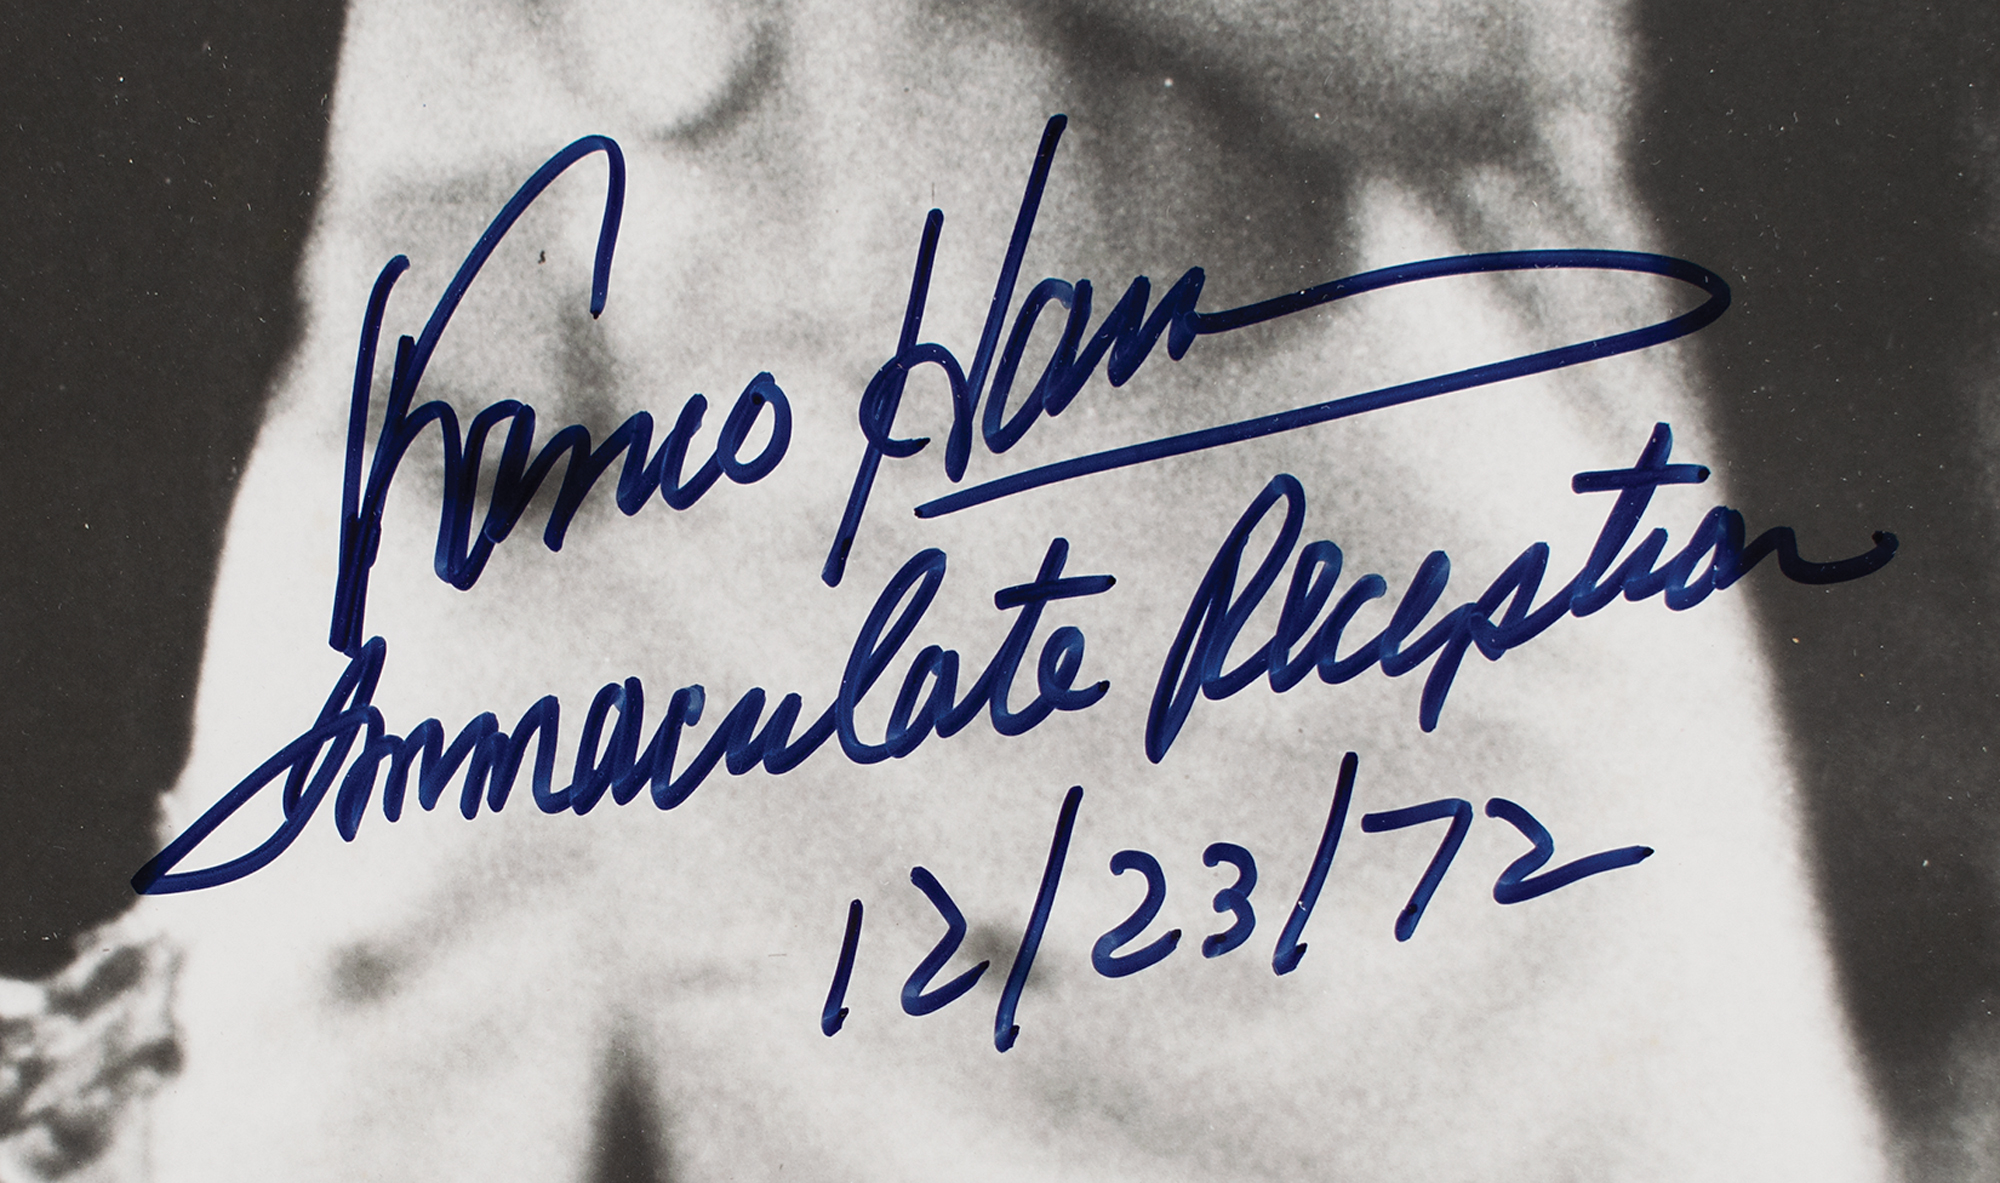 Franco Harris
Immaculate Reception
12/23/72